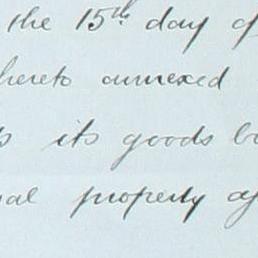 the 15th day of
hereto annexed
its goods
property